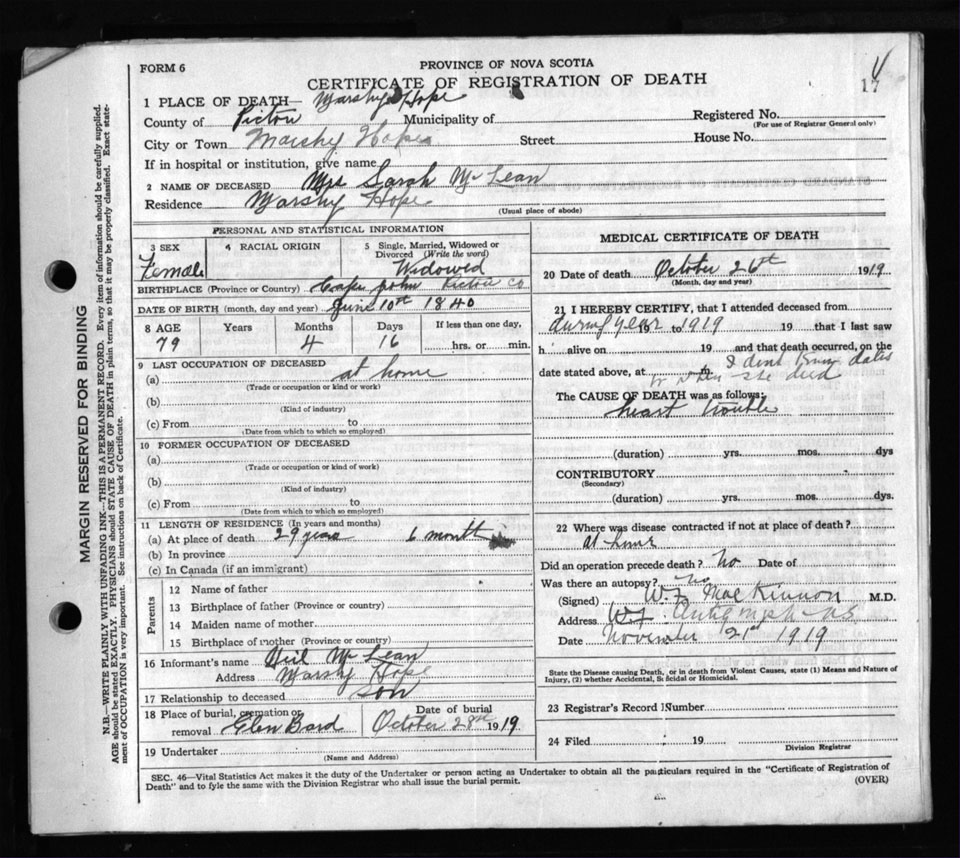 FORM 6
PROVINCE OF NOVA SCOTIA
CERTIFICATE OF REGISTRATION OF DEATH
17 4
1 PLACE OF DEATH— Marshy Hope
County of Pictou Municipality of Registered No.
(For use of Registrar General only)
City or Town Marshy Hope Street House No.
If in hospital or institution, give name
2 NAME OF DECEASED Mrs Sarah McLean
Residence Marshy Hope
(Usual place of abode)
PERSONAL AND STATISTICAL INFORMATION
3 SEX 4 RACIAL ORIGIN 5 Single, Married, Widowed or Divorced (Write the word)
Female Widowed
BIRTHPLACE (Province or Country) Cape John Pictou Co
DATE OF BIRTH (month, day and year) June 10th 1840
8 AGE Years Months Days If less than one day,
79 4 16 hrs. or min.
9 LAST OCCUPATION OF DECEASED
(a) at home
(Trade or occupation or kind of work)
(b)
(Kind of industry)
(c) From to
(Date from which to which so employed)
10 FORMER OCCUPATION OF DECEASED
(a)
(Trade or occupation or kind of work)
(b)
(Kind of industry)
(c) From to
(Date from which to which so employed)
11 LENGTH OF RESIDENCE (In years and months)
(a) At place of death 29 years 6 month
(b) In province
(c) In Canada (if an immigrant)
Parents
12 Name of father
13 Birthplace of father (Province or country)
14 Maiden name of mother
15 Birthplace of mother (Province or country)
16 Informant's name Neil McLean
Address Marshy Hope
17 Relationship to deceased son
18 Place of burial, cremation or removal Glen Bard Date of burial October 28th 1919
19 Undertaker
(Name and Address)
MEDICAL CERTIFICATE OF DEATH
20 Date of death October 26th 1919
(Month, day and year)
21 I HEREBY CERTIFY, that I attended deceased from
during year to 1919 19 that I last saw
h alive on 19 and that death occurred, on the
date stated above, at m. I dont know dates
or when she died
The CAUSE OF DEATH was as follows:
heart trouble
(duration) yrs. mos. dys
CONTRIBUTORY
(Secondary)
(duration) yrs. mos. dys.
22 Where was disease contracted if not at place of death?
at home
Did an operation precede death? No Date of
Was there an autopsy? no
(Signed) W.F. MacKinnon M.D.
Address Antigonish NS
Date November 21st 1919
State the Disease causing Death, or in death from Violent Causes, state (1) Means and Nature of
Injury, (2) whether Accidental, Suicidal or Homicidal.
23 Registrar's Record Number
24 Filed 19
Division Registrar
SEC. 46—Vital Statistics Act makes it the duty of the Undertaker or person acting as Undertaker to obtain all the particulars required in the "Certificate of Registration of
Death" and to fyle the same with the Division Registrar who shall issue the burial permit.
(OVER)
MARGIN RESERVED FOR BINDING
N.B.—WRITE PLAINLY WITH UNFADING INK—THIS IS A PERMANENT RECORD. Every item of information should be carefully supplied.
AGE should be stated EXACTLY. PHYSICIANS should STATE CAUSE OF DEATH in plain terms, so that it may be properly classified. Exact state-
ment of OCCUPATION is very important. See instructions on back of Certificate.